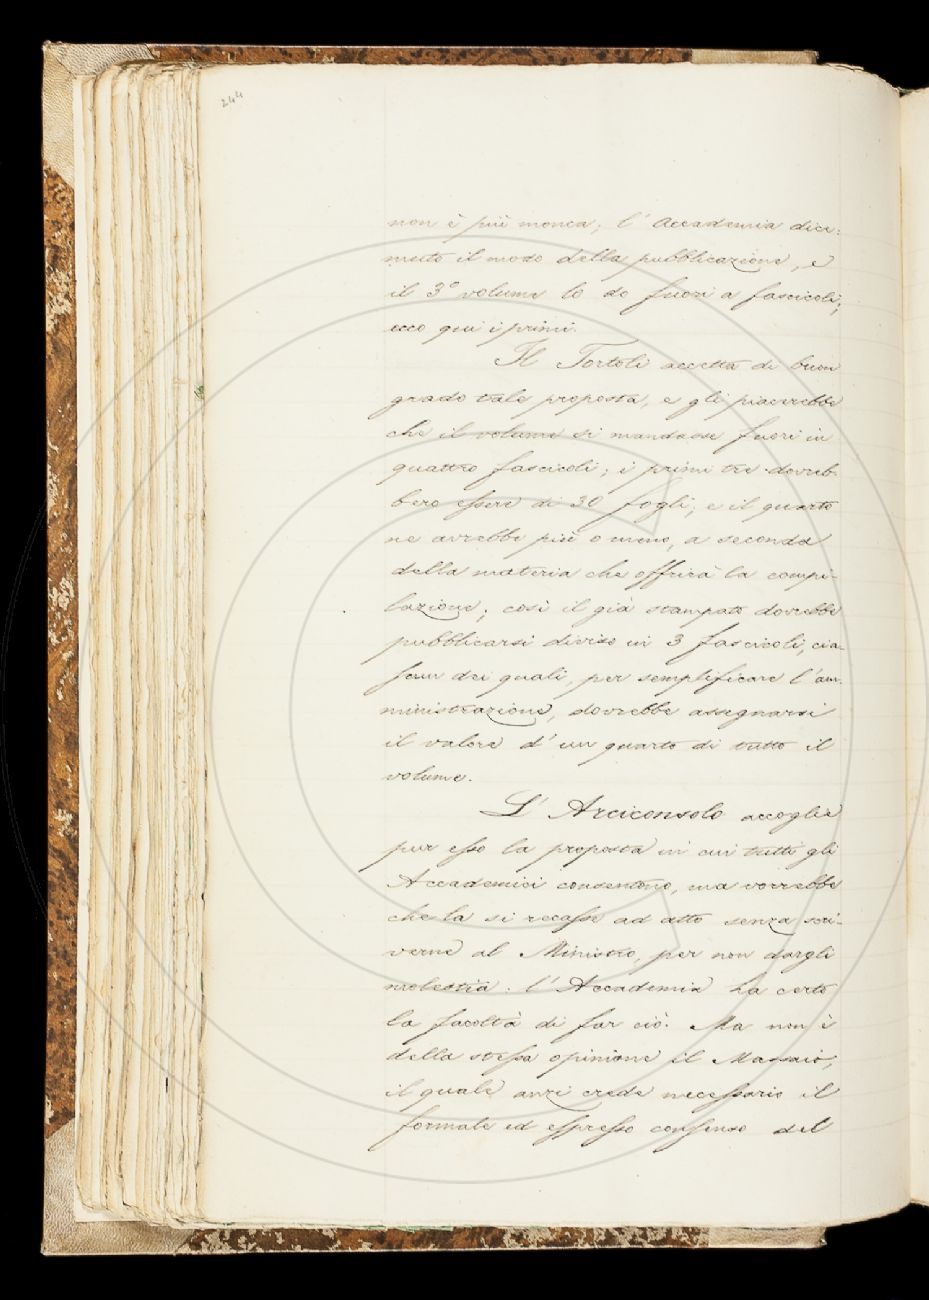 244
non è più monca; l'Accademia dice:
muto il modo della pubblicazione, e
il 3° volume lo do fuori a fascicoli;
ecco qui i primi.
Il Tortoli accetta di buon
grado tale proposta, e gli piacerebbe
che il volume si mandasse fuori in
quattro fascicoli; i primi tre dovreb-
bero essere di 30 fogli; e il quarto
ne avrebbe più o meno, a seconda
della materia che offrirà la compi-
lazione; così il già stampato dovrebbe
pubblicarsi diviso in 3 fascicoli, cia-
scun dei quali, per semplificare l'am-
ministrazione, dovrebbe assegnarsi
il valore d'un quarto di tutto il
volume.
L'Arciconsolo accoglie
pur esso la proposta in cui tutti gli
Accademici consentono, ma vorrebbe
che la si recasse ad atto senza scri-
verne al Ministro, per non dargli
molestia: l'Accademia ha certo
la facoltà di far ciò. Ma non è
della stessa opinione il Massaio,
il quale anzi crede necessario il
formale ed espresso consenso del